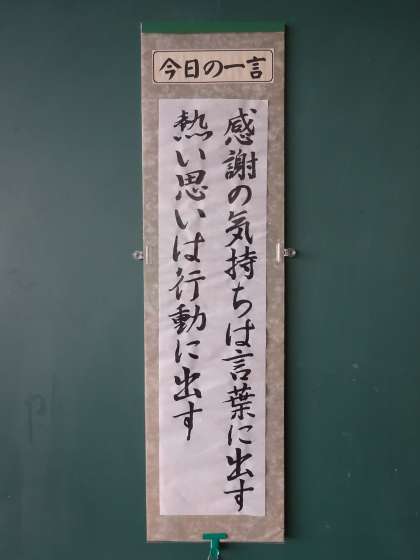 今日の一言
感謝の気持ちは言葉に出す
熱い思いは行動に出す